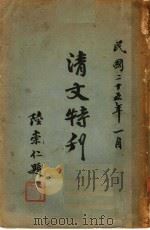 民國二十五年一月
清丈特刊
陸崇仁題